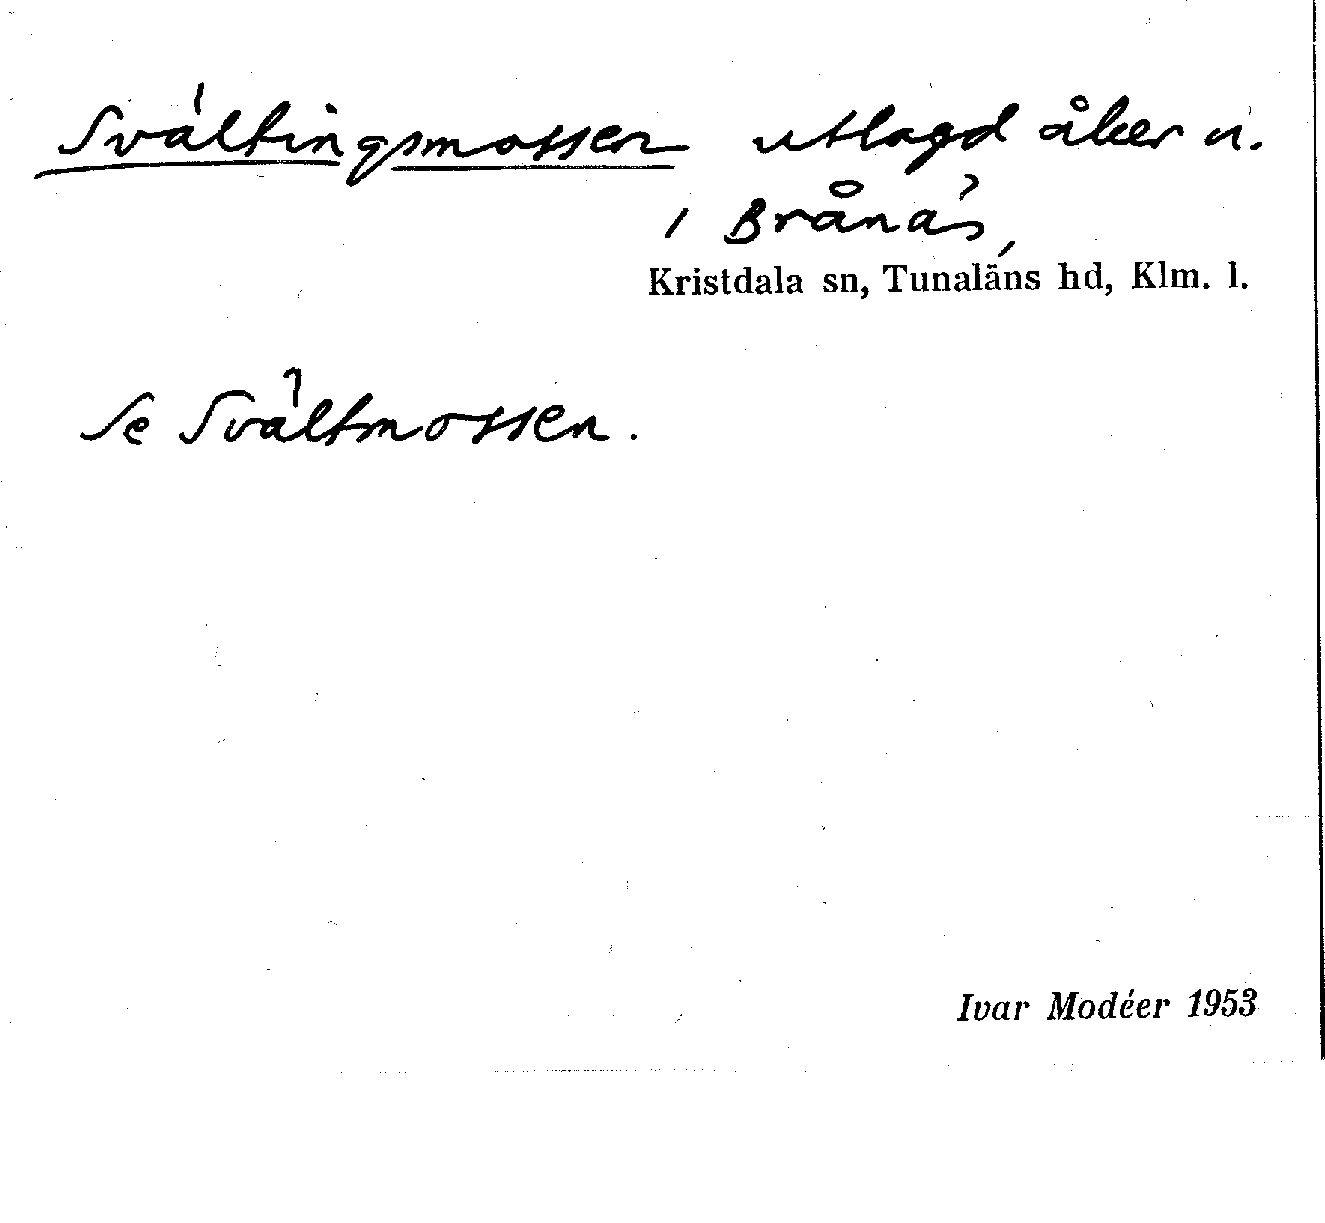 Svältingsmossen utlagd åker n.
i Brånäs,
Kristdala sn, Tunaläns hd, Klm. l.
Se Svältmossen.
Ivar Modéer 1953